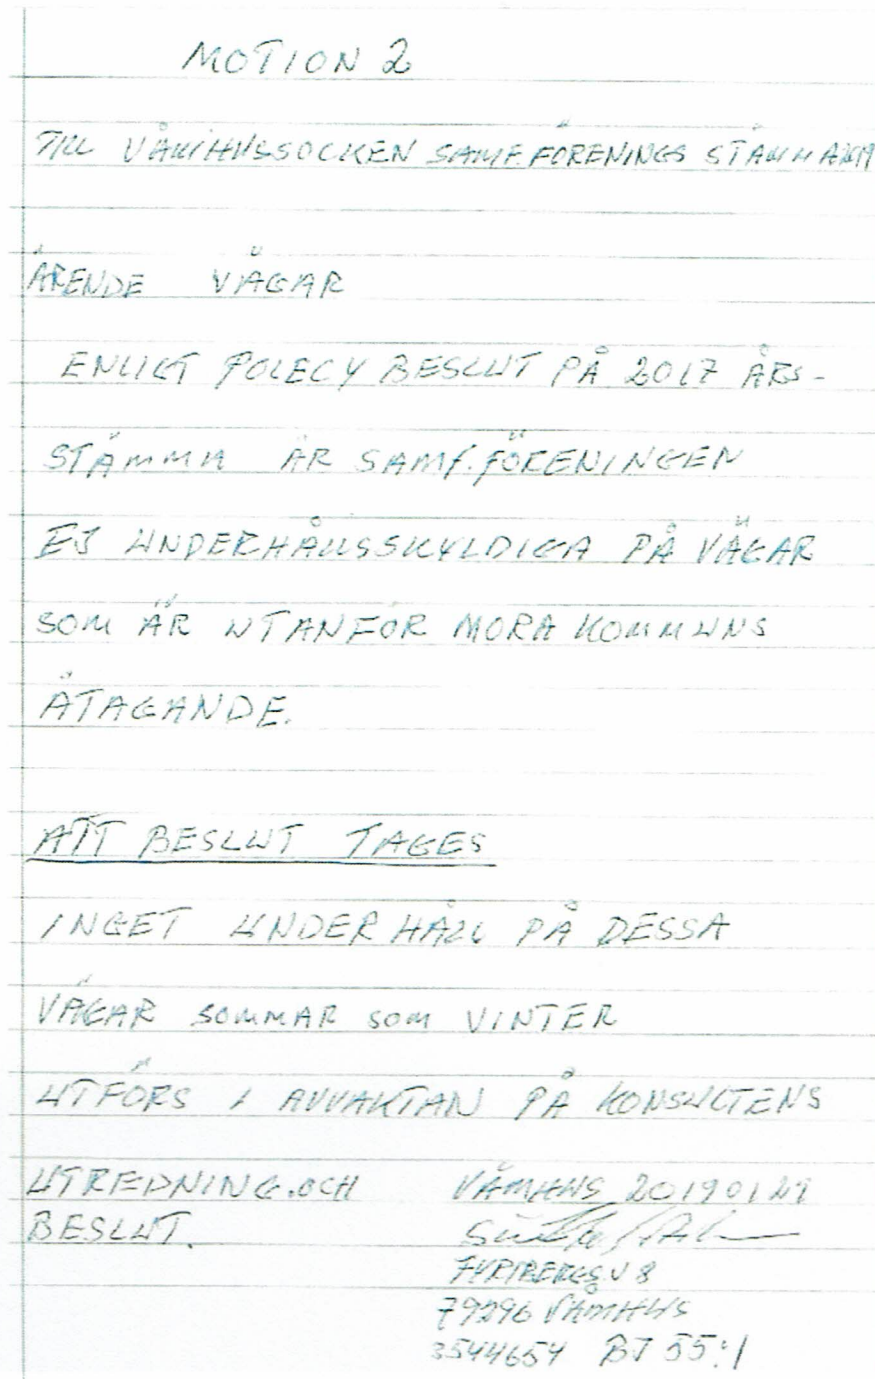 MOTION 2
TILL VÅMHUSSOCKEN SAMF.FÖRENINGS STÄMMA
ÄRENDE VÄGAR
ENLIGT POLECY BESLUT PÅ 2017 ÅRS-
STÄMMA ÄR SAMF.FÖRENINGEN
EJ UNDERHÅLLSSKYLDIGA PÅ VÄGAR
SOM ÄR UTANFÖR MORA KOMMUNS
ÅTAGANDE.
ATT BESLUT TAGES
INGET UNDERHÅLL PÅ DESSA
VÄGAR SOMMAR SOM VINTER
UTFÖRS I AVVAKTAN PÅ KONSULTENS
UTREDNING.OCH VÅMHUS 20190129
BESLUT.
79296 VÅMHUS
3544654 BJ 55:1